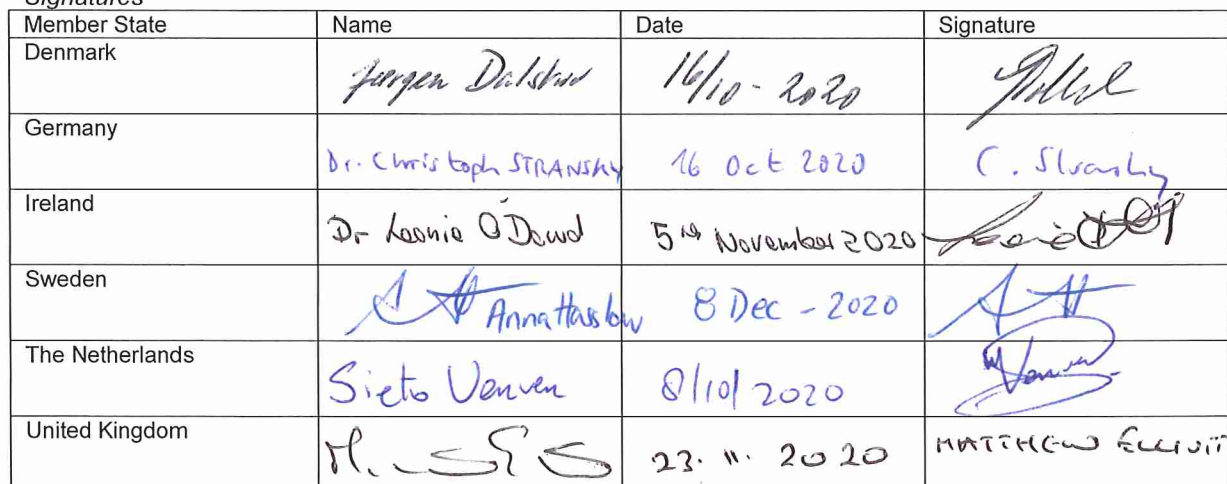 Signatures
Member State Name Date Signature
Denmark Jørgen Dalskov 16/10 - 2020
Germany Dr. Christoph STRANSKY 16 Oct 2020 C. Stransky
Ireland Dr Leonie O'Dowd 5th November 2020
Sweden Anna Hasslow 8 Dec - 2020
The Netherlands Sieto Verver 8/10/2020
United Kingdom 23. 11. 2020 MATTHEW ELLIOTT